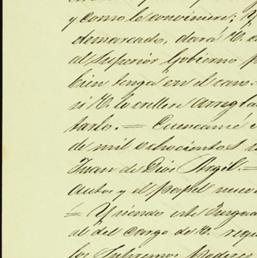 y como le conviniere; y
demarcado, dará V. c
al Superior Gobierno p
bien tenga en el caso.
si V. lo cullere arregla
tarlo. = Cucucamé
de mil ochocientos
Juan de Dios Argil. =
autos y el papel
= Y siendo este Juzga
al del cargo de V. requ
los Supremos Poderes